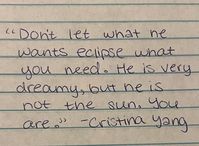 "Don't let what he
wants eclipse what
you need. He is very
dreamy, but he is
not the sun. You
are." -Cristina Yang